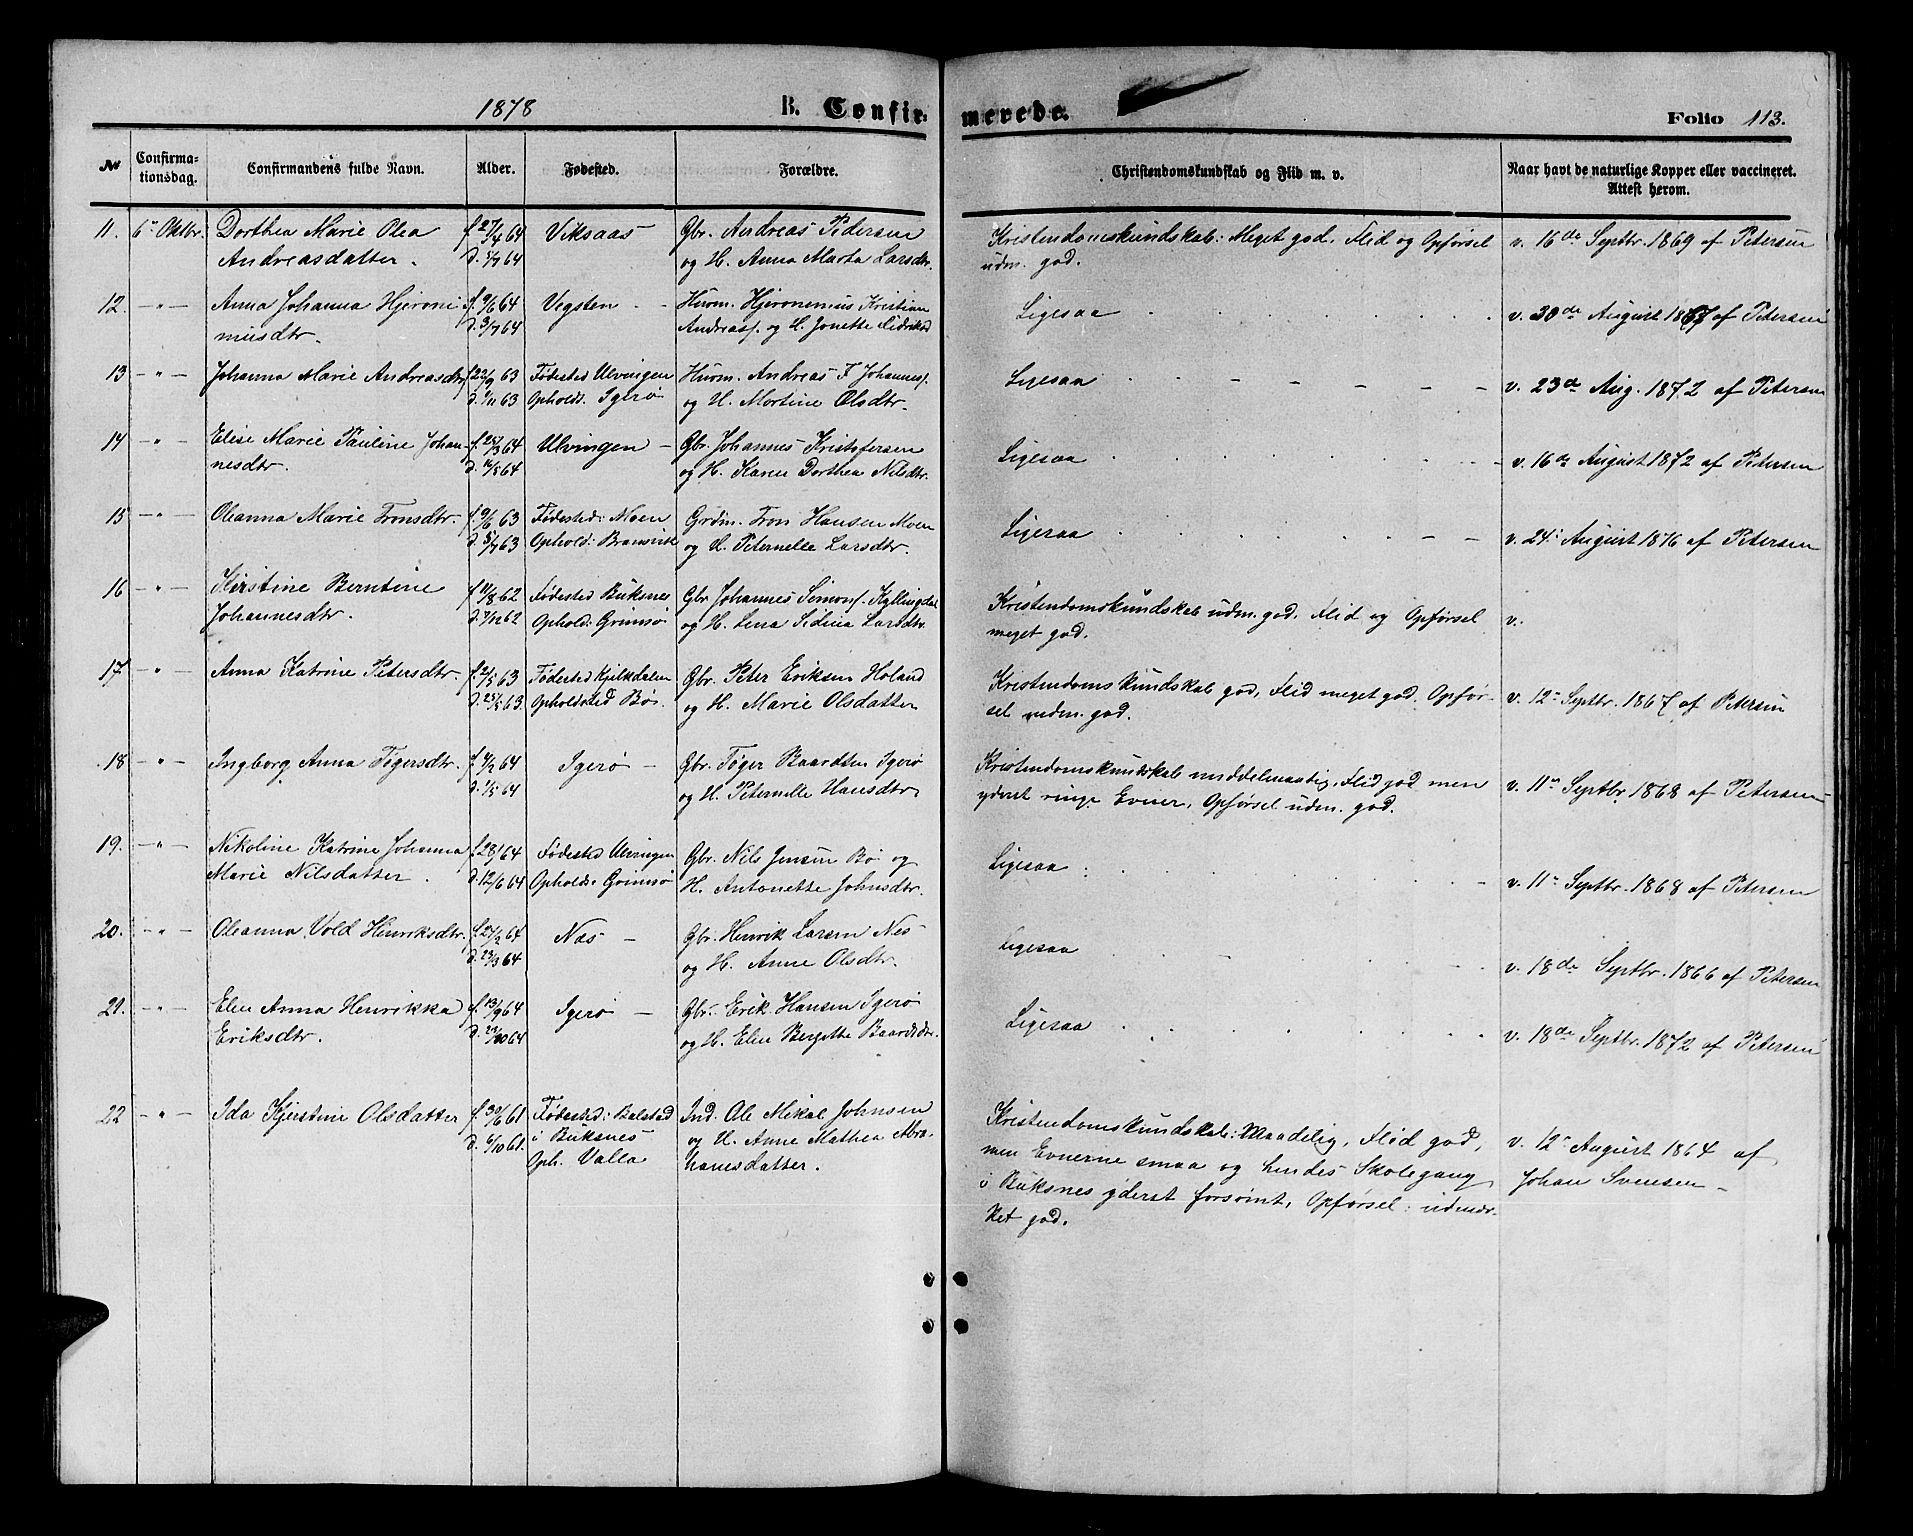 1878 B. Confirmerede. Folio 113.
№ Confirmationsdag. Confirmandens fulde Navn. Alder. Fødested. Forældre. Christendomskundskab og Flid m. v. Naar havt de naturlige Kopper eller vaccineret. Attest herom.
11. 6te Oktbr. Dorthea Marie Olea f. 27/4 64 Viksaas Gbr. Andreas Pedersen Kristendomskundskab: Meget god. Flid og Opførsel v. 16de Septbr. 1869 af Petersen
Andreasdatter. d. 5/7 64 og H. Anna Marta Larsdtr. udm. god.
12. - " - Anna Johanna Hjeroni- f. 9/6 64 Vegsten - Husm. Hjeronemus Kristian Ligesaa v. 30de August 1867 af Petersen
musdtr. d. 3/7 64 Andreass. og H. Jonette
13 - " - Johanna Marie Andreasdtr. f. 22/9 63 Fødested Ulvingen Husm. Andreas F Johannes. Ligesaa v. 23de Aug. 1872 af Petersen
d. 1/11 63 Opholds. Igerø og H. Mortine Olsdtr.
14 - " - Elise Marie Pauline Johan- f. 25/3 64 Ulvingen - Gbr. Johannes Kristofersen Ligesaa v. 16de August 1872 af Petersen
nesdtr. d. 64 og H. Karen Dorthea Nilsdtr.
15 - " - Oleanna Marie Tronsdtr. f. 9/6 63 Fødested: Moen Grdm. Tron Hansen Moen Ligesaa v. 24. August 1876 af Petersen
d. 5/7 63 Ophold: og H. Peternelle Larsdtr.
16 - " - Kirstine Berntine f. 11/8 62 Fødested Buksnes Gbr Johannes Simons. Kyllingdal Kristendomskundskab udm. god. Flid og Opførsel v.
Johannesdtr. d. 7/12 62 Ophold: Grimsø og H. Lena Sedina Larsdtr. meget god.
17 - " - Anna Katrine Petersdtr. f. 2/5 63 Fødested Kjelkdalen Gbr. Peter Eriksen Holand Kristendomskundskab god, Flid meget god. Opfør- v. 12te Septbr. 1867 af Petersen
d. 25/5 63. Opholdsted Bø. og H. Marie Olsdatter sel udm. god.
18 - " - Ingborg Anna Tøgersdtr. f. 4/2 64 Igerø - Gbr. Tøger Baardsen Igerø Kristendomskundskab middelmaadig, Flid god men v. 11te Septbr. 1868 af Petersen
d. 1/5 64 og H. Peternelle Hansdtr. yderst ringe Evner, Opførsel udm. god.
19. - " - Nikoline Katrine Johanna f. 64 Fødested Ulvingen Gbr. Nils Jensen Bø og Ligesaa v. 11te Septbr. 1868 af Petersen
Marie Nilsdatter. d. 12/6 64 Ophold: Grimsø H. Antonette Johnsdtr.
20. - " - Oleanna Vold Henriksdtr. f. 27/2 64 Næs - Gbr. Henrik Larsen Nes Ligesaa v. 18de Septbr. 1866 af Petersen
d. 28/3 64 og H. Anne Olsdtr.
21. - " - Elen Anna Henrikka f. 13/9 64 Igerø - Gbr. Erik Hansen Igerø Ligesaa v. 18de Septbr. 1872 af Petersen
Eriksdtr. d. 23/10 64 og H. Elen Bergitte Baardsdtr.
22 - " - Ida Kjerstine Olsdatter f. 30/6 61 Fødested: Balstad Ind. Ole Mikal Johnsen Kristendomskundskab: Maadelig, Flid god, v. 12te August 1864 af
d. 6/10 61. i Buksnes og H. Anne Mathea Abra- men Evnerne smaa og hendes Skolegang Johan Svensen
Oph. Valla hamsdatter. i Buksnes yderst forsømt, Opførsel: udmær-
ket god.